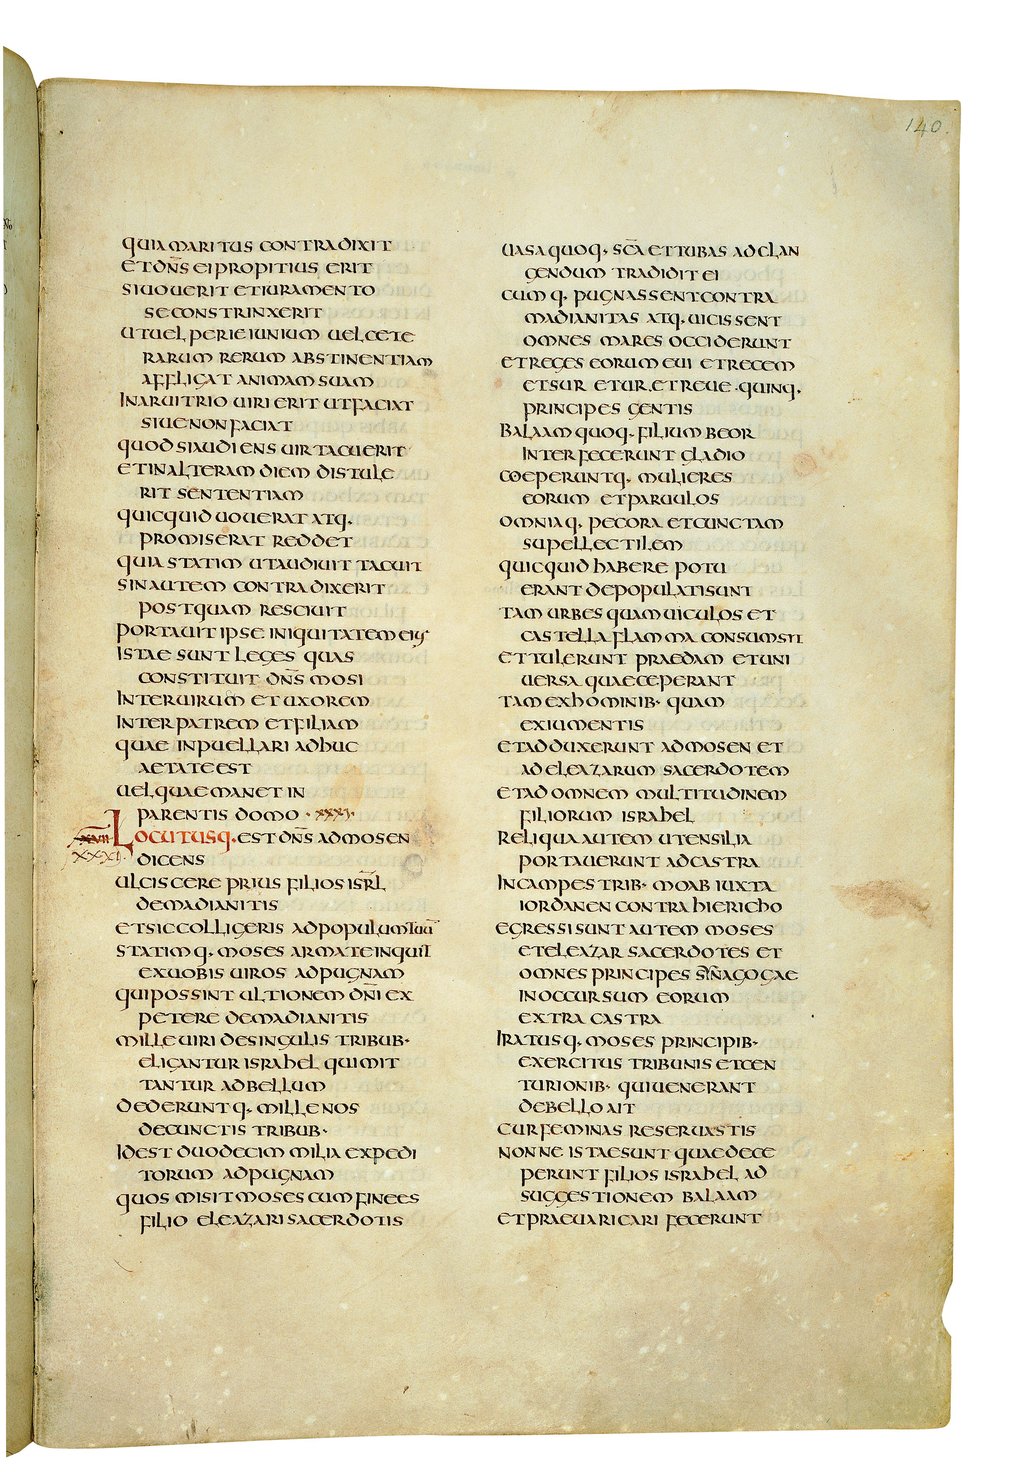 140.
QUIA MARITUS CONTRADIXIT
ET DN̅S EI PROPITIUS ERIT
SI UOUERIT ET IURAMENTO
SE CONSTRINXERIT
UT UEL PER IEIUNIUM UEL CETE
RARUM RERUM ABSTINENTIAM
AFFLIGAT ANIMAM SUAM
IN ARUITRIO UIRI ERIT UT FACIAT
SIUE NON FACIAT
QUOD SI AUDIENS UIR TACUERIT
ET IN ALTERAM DIEM DISTULE
RIT SENTENTIAM
QUICQUID UOUERAT ATQ·
PROMISERAT REDDET
QUIA STATIM UT AUDIUIT TACUIT
SIN AUTEM CONTRADIXERIT
POSTQUAM RESCIUIT
PORTAUIT IPSE INIQUITATEM EIUS
ISTAE SUNT LEGES QUAS
CONSTITUIT DN̅S MOSI
INTER UIRUM ET UXOREM
INTER PATREM ET FILIAM
QUAE IN PUELLARI ADHUC
AETATE EST
UEL QUAE MANET IN
PARENTIS DOMO · XXXI·
XVII LOCUTUSQ· EST DN̅S AD MOSEN
XXXI· DICENS
ULCISCERE PRIUS FILIOS ISRL̅
DE MADIANITIS
ET SIC COLLIGERIS AD POPULUM TUU̅
STATIMQ· MOSES ARMATE INQUIT
EX UOBIS UIROS AD PUGNAM
QUI POSSINT ULTIONEM DN̅I EX
PETERE DE MADIANITIS
MILLE UIRI DE SINGULIS TRIBUB·
ELIGANTUR ISRAHEL QUI MIT
TANTUR AD BELLUM
DEDERUNTQ· MILLENOS
DE CUNCTIS TRIBUB·
ID EST DUODECIM MILIA EXPEDI
TORUM AD PUGNAM
QUOS MISIT MOSES CUM FINEES
FILIO ELEAZARI SACERDOTIS
UASA QUOQ· SC̅A ET TUBAS AD CLAN
GENDUM TRADIDIT EI
CUMQ· PUGNASSENT CONTRA
MADIANITAS ATQ· UICISSENT
OMNES MARES OCCIDERUNT
ET REGES EORUM EUI ET RECEM
ET SUR ET UR ET REUE · QUINQ·
PRINCIPES GENTIS
BALAAM QUOQ· FILIUM BEOR
INTERFECERUNT GLADIO
COEPERUNTQ· MULIERES
EORUM ET PARUULOS
OMNIAQ· PECORA ET CUNCTAM
SUPELLECTILEM
QUICQUID HABERE POTU
ERANT DEPOPULATI SUNT
TAM URBES QUAM UICULOS ET
CASTELLA FLAMMA CONSUMSIT
ET TULERUNT PRAEDAM ET UNI
UERSA QUAE CEPERANT
TAM EX HOMINIB· QUAM
EX IUMENTIS
ET ADDUXERUNT AD MOSEN ET
AD ELEAZARUM SACERDOTEM
ET AD OMNEM MULTITUDINEM
FILIORUM ISRAHEL
RELIQUA AUTEM UTENSILIA
PORTAUERUNT AD CASTRA
IN CAMPESTRIB· MOAB IUXTA
IORDANEN CONTRA HIERICHO
EGRESSI SUNT AUTEM MOSES
ET ELEAZAR SACERDOTES ET
OMNES PRINCIPES SYNAGOGAE
IN OCCURSUM EORUM
EXTRA CASTRA
IRATUSQ· MOSES PRINCIPIB·
EXERCITUS TRIBUNIS ET CEN
TURIONIB· QUI UENERANT
DE BELLO AIT
CUR FEMINAS RESERUASTIS
NONNE ISTAE SUNT QUAE DECE
PERUNT FILIOS ISRAHEL AD
SUGGESTIONEM BALAAM
ET PRAEUARICARI FECERUNT